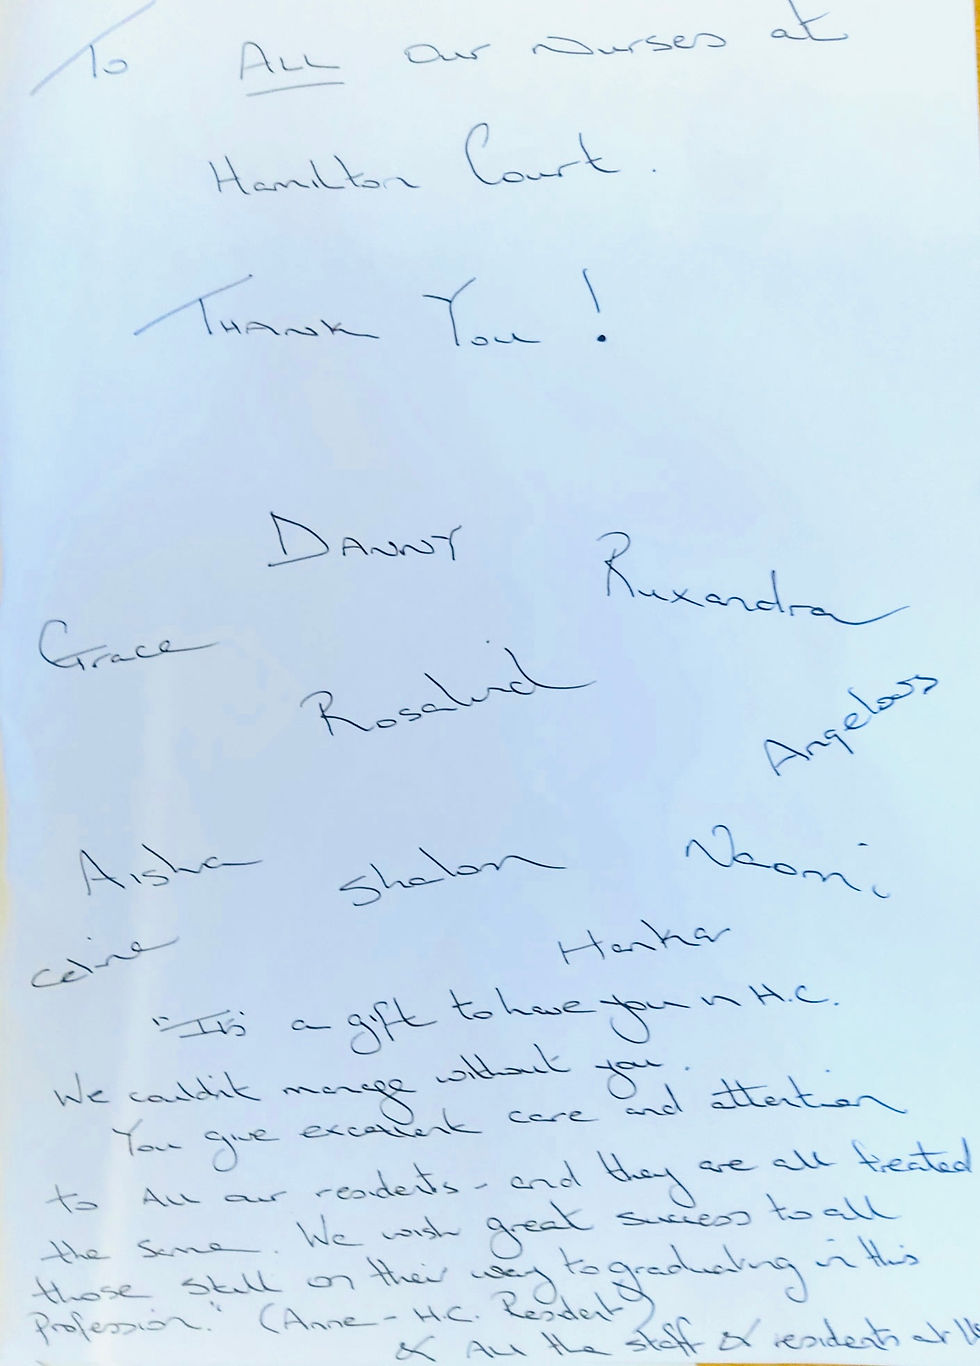 To ALL our Nurses at
Hamilton Court.
THANK You!
DANNY
Ruxandra
Grace
Rosalind
Angelous
Aisha
Shalom
Naomi
Celine
Hankar
"It's a gift to have you in H.C.
We couldn't manage without you.
You give excellent care and attention
to All our residents - and they are all treated
the same. We wish great success to all
those still on their way to graduating in this
Profession." (Anne - H.C. Resident)
& All the staff & residents at